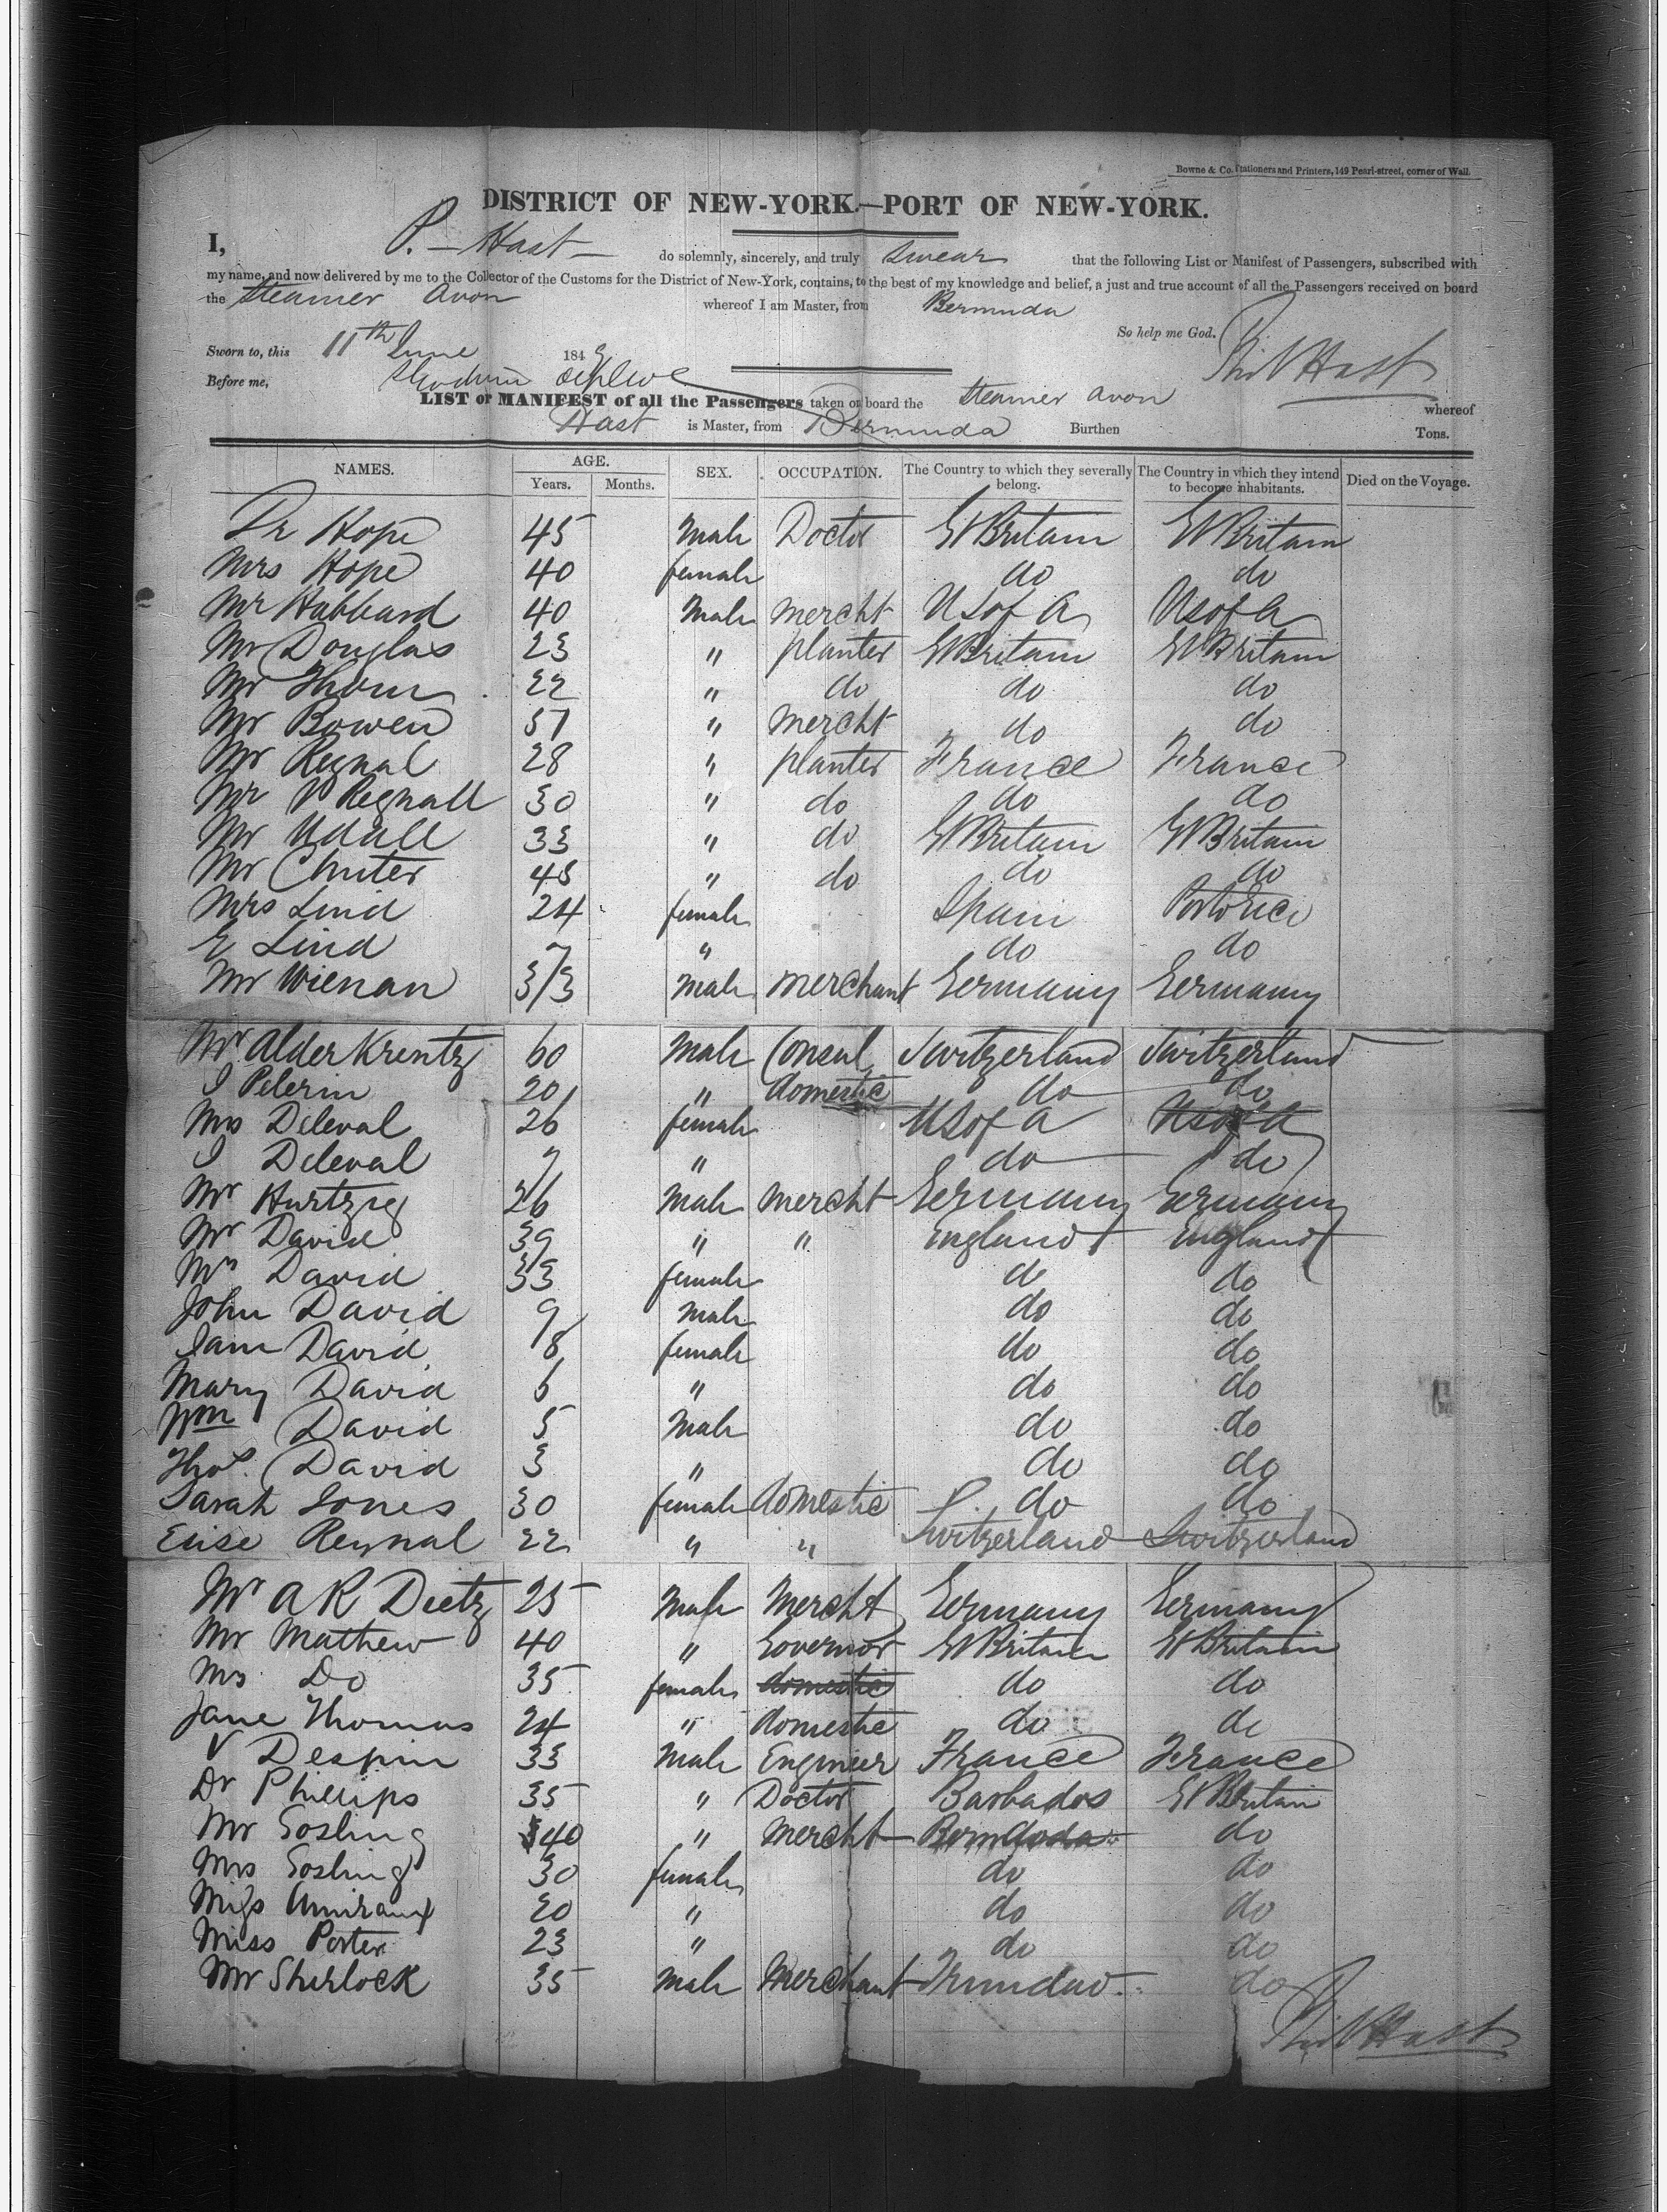 Bowne & Co. Stationers and Printers, 149 Pearl-street, corner of Wall.
DISTRICT OF NEW-YORK.—PORT OF NEW-YORK.
I, P. Hast do solemnly, sincerely, and truly swear that the following List or Manifest of Passengers, subscribed with
my name, and now delivered by me to the Collector of the Customs for the District of New-York, contains, to the best of my knowledge and belief, a just and true account of all the Passengers received on board
the Steamer Avon whereof I am Master, from Bermuda
So help me God. Phil Hast
Sworn to, this 11th June 1849
Before me,
LIST or MANIFEST of all the Passengers taken on board the Steamer Avon whereof
Hast is Master, from Bermuda Burthen Tons.
NAMES. AGE. Years. Months. SEX. OCCUPATION. The Country to which they severally belong. The Country in which they intend to become inhabitants. Died on the Voyage.
Dr Hope 45 Male Doctor Gt Britain Gt Britain
Mrs Hope 40 female do do
Mr Hubbard 40 Male mercht US of A US of A
Mr Douglas 23 " planter Gt Britain Gt Britain
Mr Thom 22 " do do do
Mr Bowen 37 " mercht do do
Mr Reynal 28 " planter France France
Mr V Regnall 30 " do do do
Mr Udall 33 " do Gt Britain Gt Britain
Mr Chuter 48 " do do do
Mrs Lind 24 female Spain Porto Rico
E Lind 7 " do do
Mr Wienan 33 Male merchant Germany Germany
Mr Alder Krentz 60 Male Consul Switzerland Switzerland
J Pelerin 20 " domestic do do
Mrs Deleval 26 female US of A US of A
J Deleval 7 " do do
Mr Hurtzig 26 Male mercht Germany Germany
Mr David 39 " " England England
Mrs David 33 female do do
John David 9 Male do do
Jane David 8 female do do
Mary David 6 " do do
Wm David 5 Male do do
Thos. David 3 " do do
Sarah Jones 30 female domestic do do
Elise Reynal 22 " " Switzerland Switzerland
Mr A R Dietz 25 Male Mercht Germany Germany
Mr Mathew 40 " Governor Gt Britain Gt Britain
Mrs Do 35 female domestic do do
Jane Thomas 24 " domestic do do
V Despin 33 Male Engineer France France
Dr Phillips 35 " Doctor Barbados Gt Britain
Mr Gosling 40 " Mercht Bermuda do
Mrs Gosling 30 female do do
Miss 20 " do do
Miss Porter 23 " do do
Mr Sherlock 35 Male Merchant Trinidad do
Phil Hast